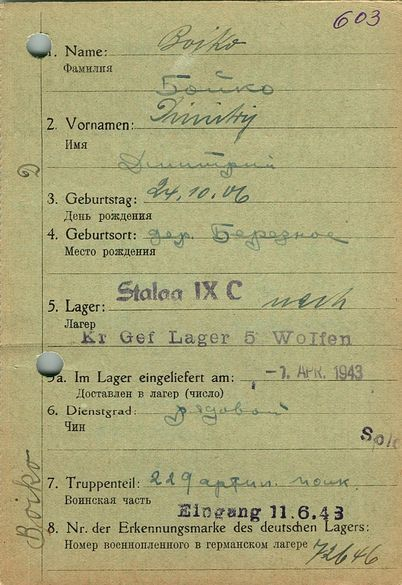 603
1. Name: Boiko
Фамилия
Бойко
2. Vornamen: Dimitrij
Имя
Дмитрий
3. Geburtstag: 24.10.06
День рождения
4. Geburtsort: дер. Бередное
Место рождения
Stalag IX C nach
5. Lager:
Лагер
Kr Gef Lager 5 Wolfen
5a. Im Lager eingeliefert am: -7. APR. 1943
Доставлен в лагер (число)
6. Dienstgrad: рядовой
Чин
7. Truppenteil: 229 артил. полк
Воинская часть
Eingang 11.6.43
8. Nr. der Erkennungsmarke des deutschen Lagers:
Номер военнопленного в германском лагере 72646
Boiko